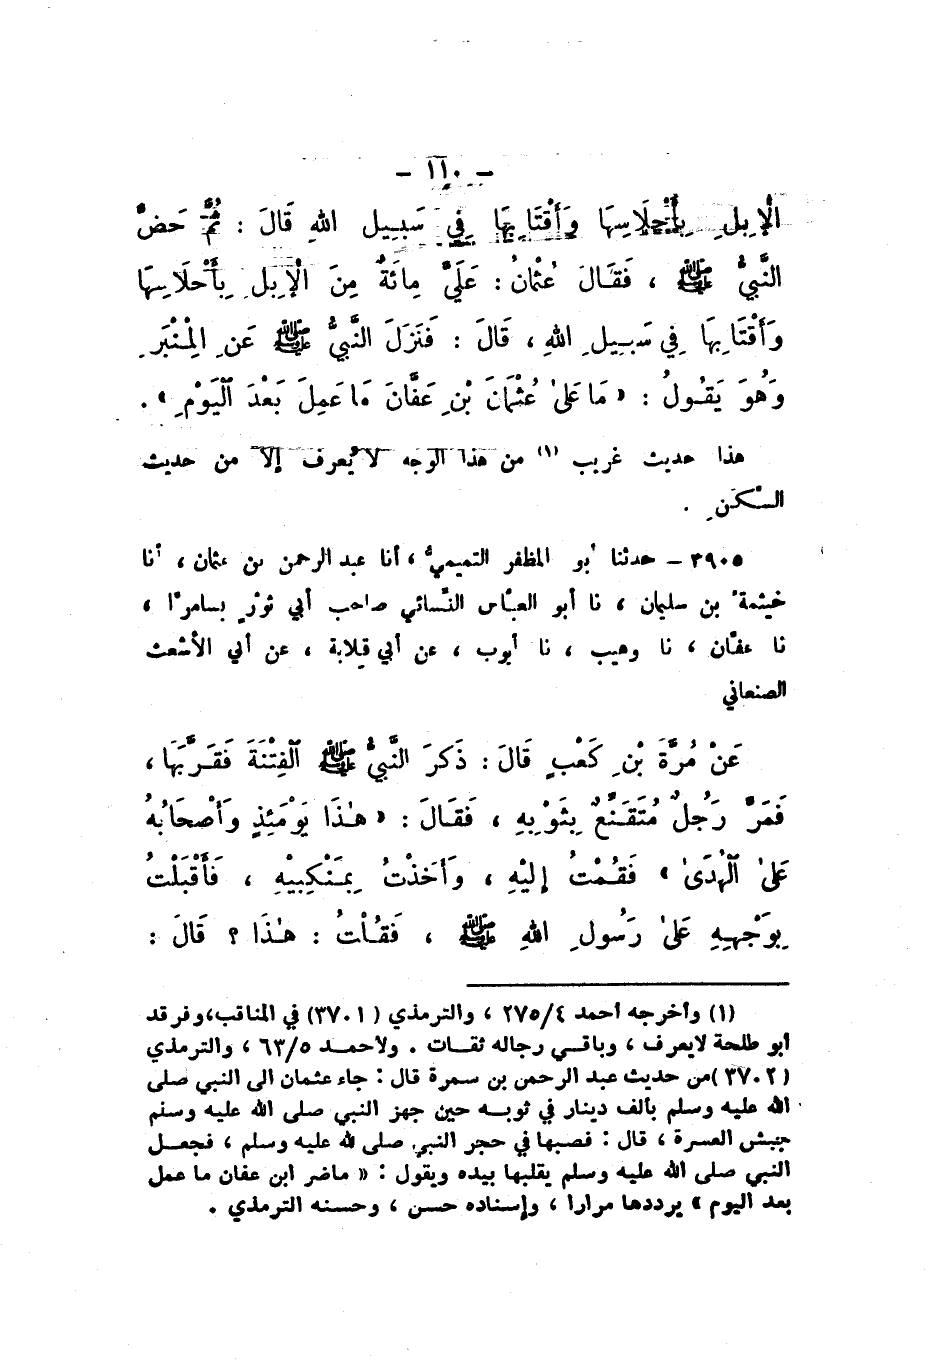 - ١١٠ -
الْإِبِلِ بِأَحْلَاسِهَا وَأَقْتَابِهَا فِي سَبِيلِ اللهِ قَالَ : ثُمَّ حَضَّ
النَّبِيُّ ﷺ ، فَقَالَ عُثْمَانُ : عَلَيَّ مِائَةٌ مِنَ الْإِبِلِ بِأَحْلَاسِهَا
وَأَقْتَابِهَا فِي سَبِيلِ اللهِ ، قَالَ : فَنَزَلَ النَّبِيُّ ﷺ عَنِ الْمِنْبَرِ
وَهُوَ يَقُولُ : « مَا عَلَىٰ عُثْمَانَ بْنِ عَفَّانَ مَا عَمِلَ بَعْدَ الْيَوْمِ » .
هذا حديث غريب (١) من هذا الوجه لا يُعرف إلا من حديث
السَّكَنِ .
٣٩٠٥ - حدثنا أبو المظفر التميميُّ ، أنا عبد الرحمن بن عثمان ، أنا
خيثمة بن سليمان ، نا أبو العبَّاس النَّسائي صاحب أبي ثوْرٍ بسامرَّا ،
نا عفَّان ، نا وهيب ، نا أيوب ، عن أبي قِلابة ، عن أبي الأشعث
الصنعاني
عَنْ مُرَّةَ بْنِ كَعْبٍ قَالَ : ذَكَرَ النَّبِيُّ ﷺ الْفِتْنَةَ فَقَرَّبَهَا ،
فَمَرَّ رَجُلٌ مُتَقَنِّعٌ بِثَوْبِهِ ، فَقَالَ : « هٰذَا يَوْمَئِذٍ وَأَصْحَابُهُ
عَلَىٰ الْهُدَىٰ » فَقُمْتُ إِلَيْهِ ، وَأَخَذْتُ بِمَنْكِبَيْهِ ، فَأَقْبَلْتُ
بِوَجْهِهِ عَلَىٰ رَسُولِ اللهِ ﷺ ، فَقُلْتُ : هٰذَا ؟ قَالَ :
(١) وأخرجه أحمد ٢٧٥/٤ ، والترمذي (٣٧٠١) في المناقب،وفرقد
أبو طلحة لايعرف ، وباقي رجاله ثقات . ولاحمد ٦٣/٥ ، والترمذي
(٣٧٠٢)من حديث عبد الرحمن بن سمرة قال : جاء عثمان الى النبي صلى
الله عليه وسلم بألف دينار في ثوبه حين جهز النبي صلى الله عليه وسلم
جيش العسرة ، قال : فصبها في حجر النبي صلى لله عليه وسلم ، فجعل
النبي صلى الله عليه وسلم يقلبها بيده ويقول : « ماضر ابن عفان ما عمل
بعد اليوم » يرددها مرارا ، وإسناده حسن ، وحسنه الترمذي .